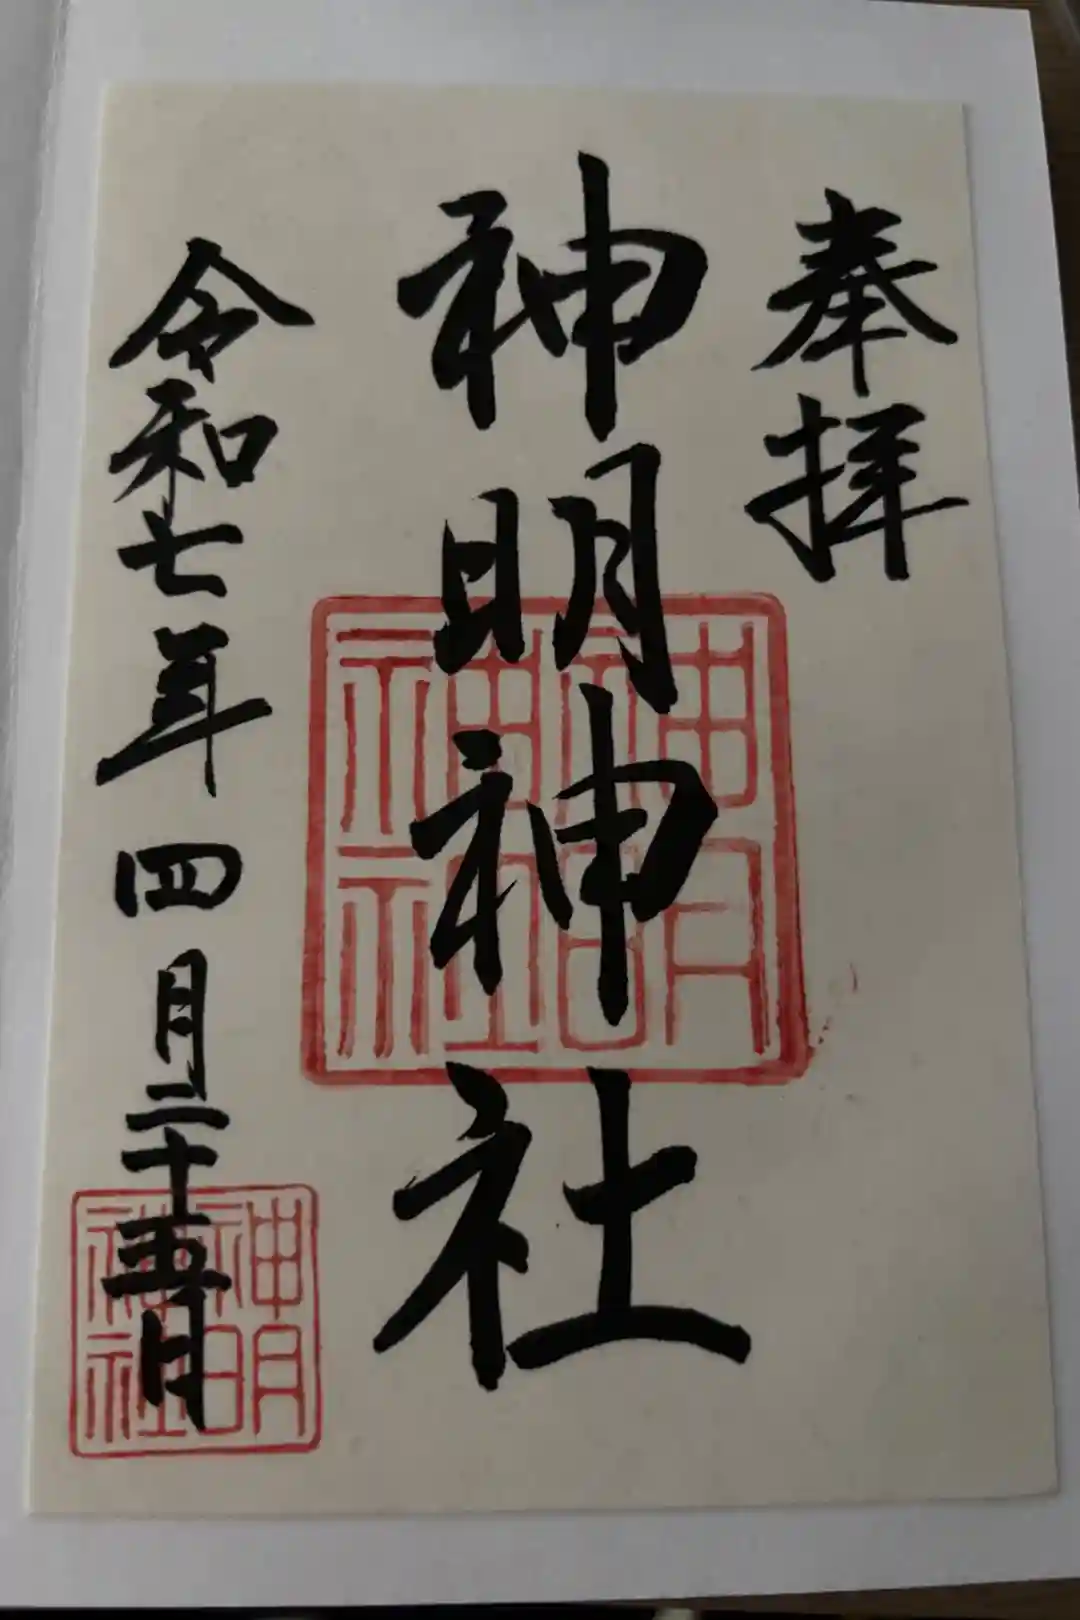 奉拝
神明神社
神明神社
令和七年四月二十五日
神明神社